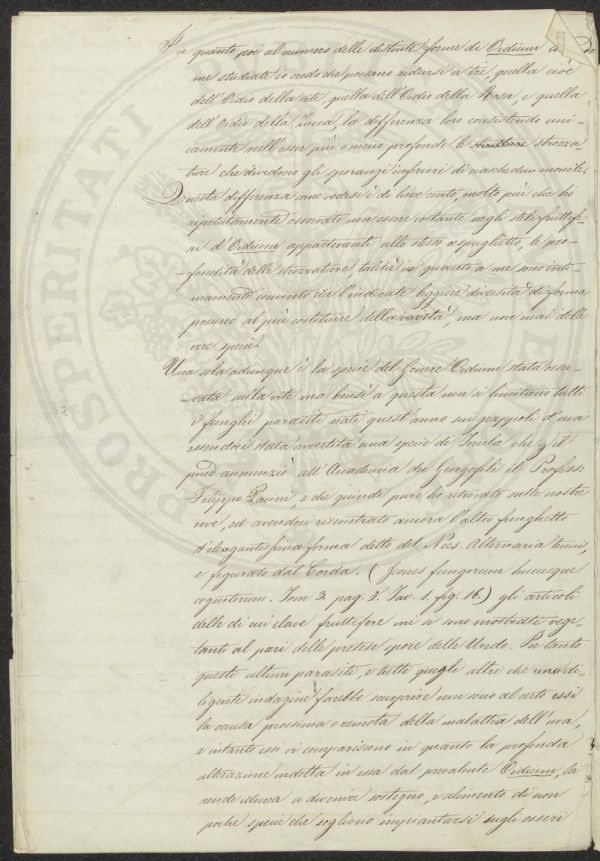 In quanto poi al numero delle distinte forme di Oidium co-
me studiate io credo che possano ridursi a tre, quella cioè
dell'Oidio della vite, quella dell'Oidio della Rosa, e quella
dell'Oidio della Zucca, la differenza loro consistendo uni-
camente nell'esser più o meno profonde le strozza-
ture che dividono gli sporangi inferiori di ciaschedun monile.
Questa differenza come vedesi è di lieve conto, molto più che ho
ripetutamente osservato non essere costante negli steli fruttife-
ri d'Oidium appartenenti allo stesso cespuglietto, la pro-
fondità delle strozzature, talché in quanto a me sono inti-
mamente convinto che l'indicate leggiere diversità di forma
possono al più costituire delle varietà, ma non mai delle
vere specie.
Una sola adunque è la specie del Genere Oidium stata osser-
vata sulla vite ma a questa non si limitano tutti
i funghi parasiti nati quest'anno sui grappoli d'uva
essendovi stata avvertita una specie di Torula che il
primo annunziò all'Accademia dei Georgofili il Profess:
Filippo e che quindi pure ho ritrovato sulle nostre
uve, ed avendovi riscontrato ancora l'altro funghetto
d'elegantissima forma detto dal Nees. Alternaria tenuis,
e figurato dal Corda. (Icones fungorum hucusque
cognitorum. Tom 3. pag. 5. Tav. 1. fig. 16.) gli articoli
delle di cui clave fruttifere mi si sono mostrati vege-
tanti al pari delle pretese spore delle Uredo. Pertanto
questi ultimi parasiti, e tutti quegli altri che una di-
ligente indagine farebbe scuoprire non sono al certo essi
la causa prossima o remota della malattia dell'uva,
e intanto essi vi compariscono in quanto la profonda
alterazione indotta in essa dal prevalente Oidium, la
rende idonea a divenire sostegno, e alimento di non
poche specie che sogliono impiantarsi sugli esseri
PROSPERITATI